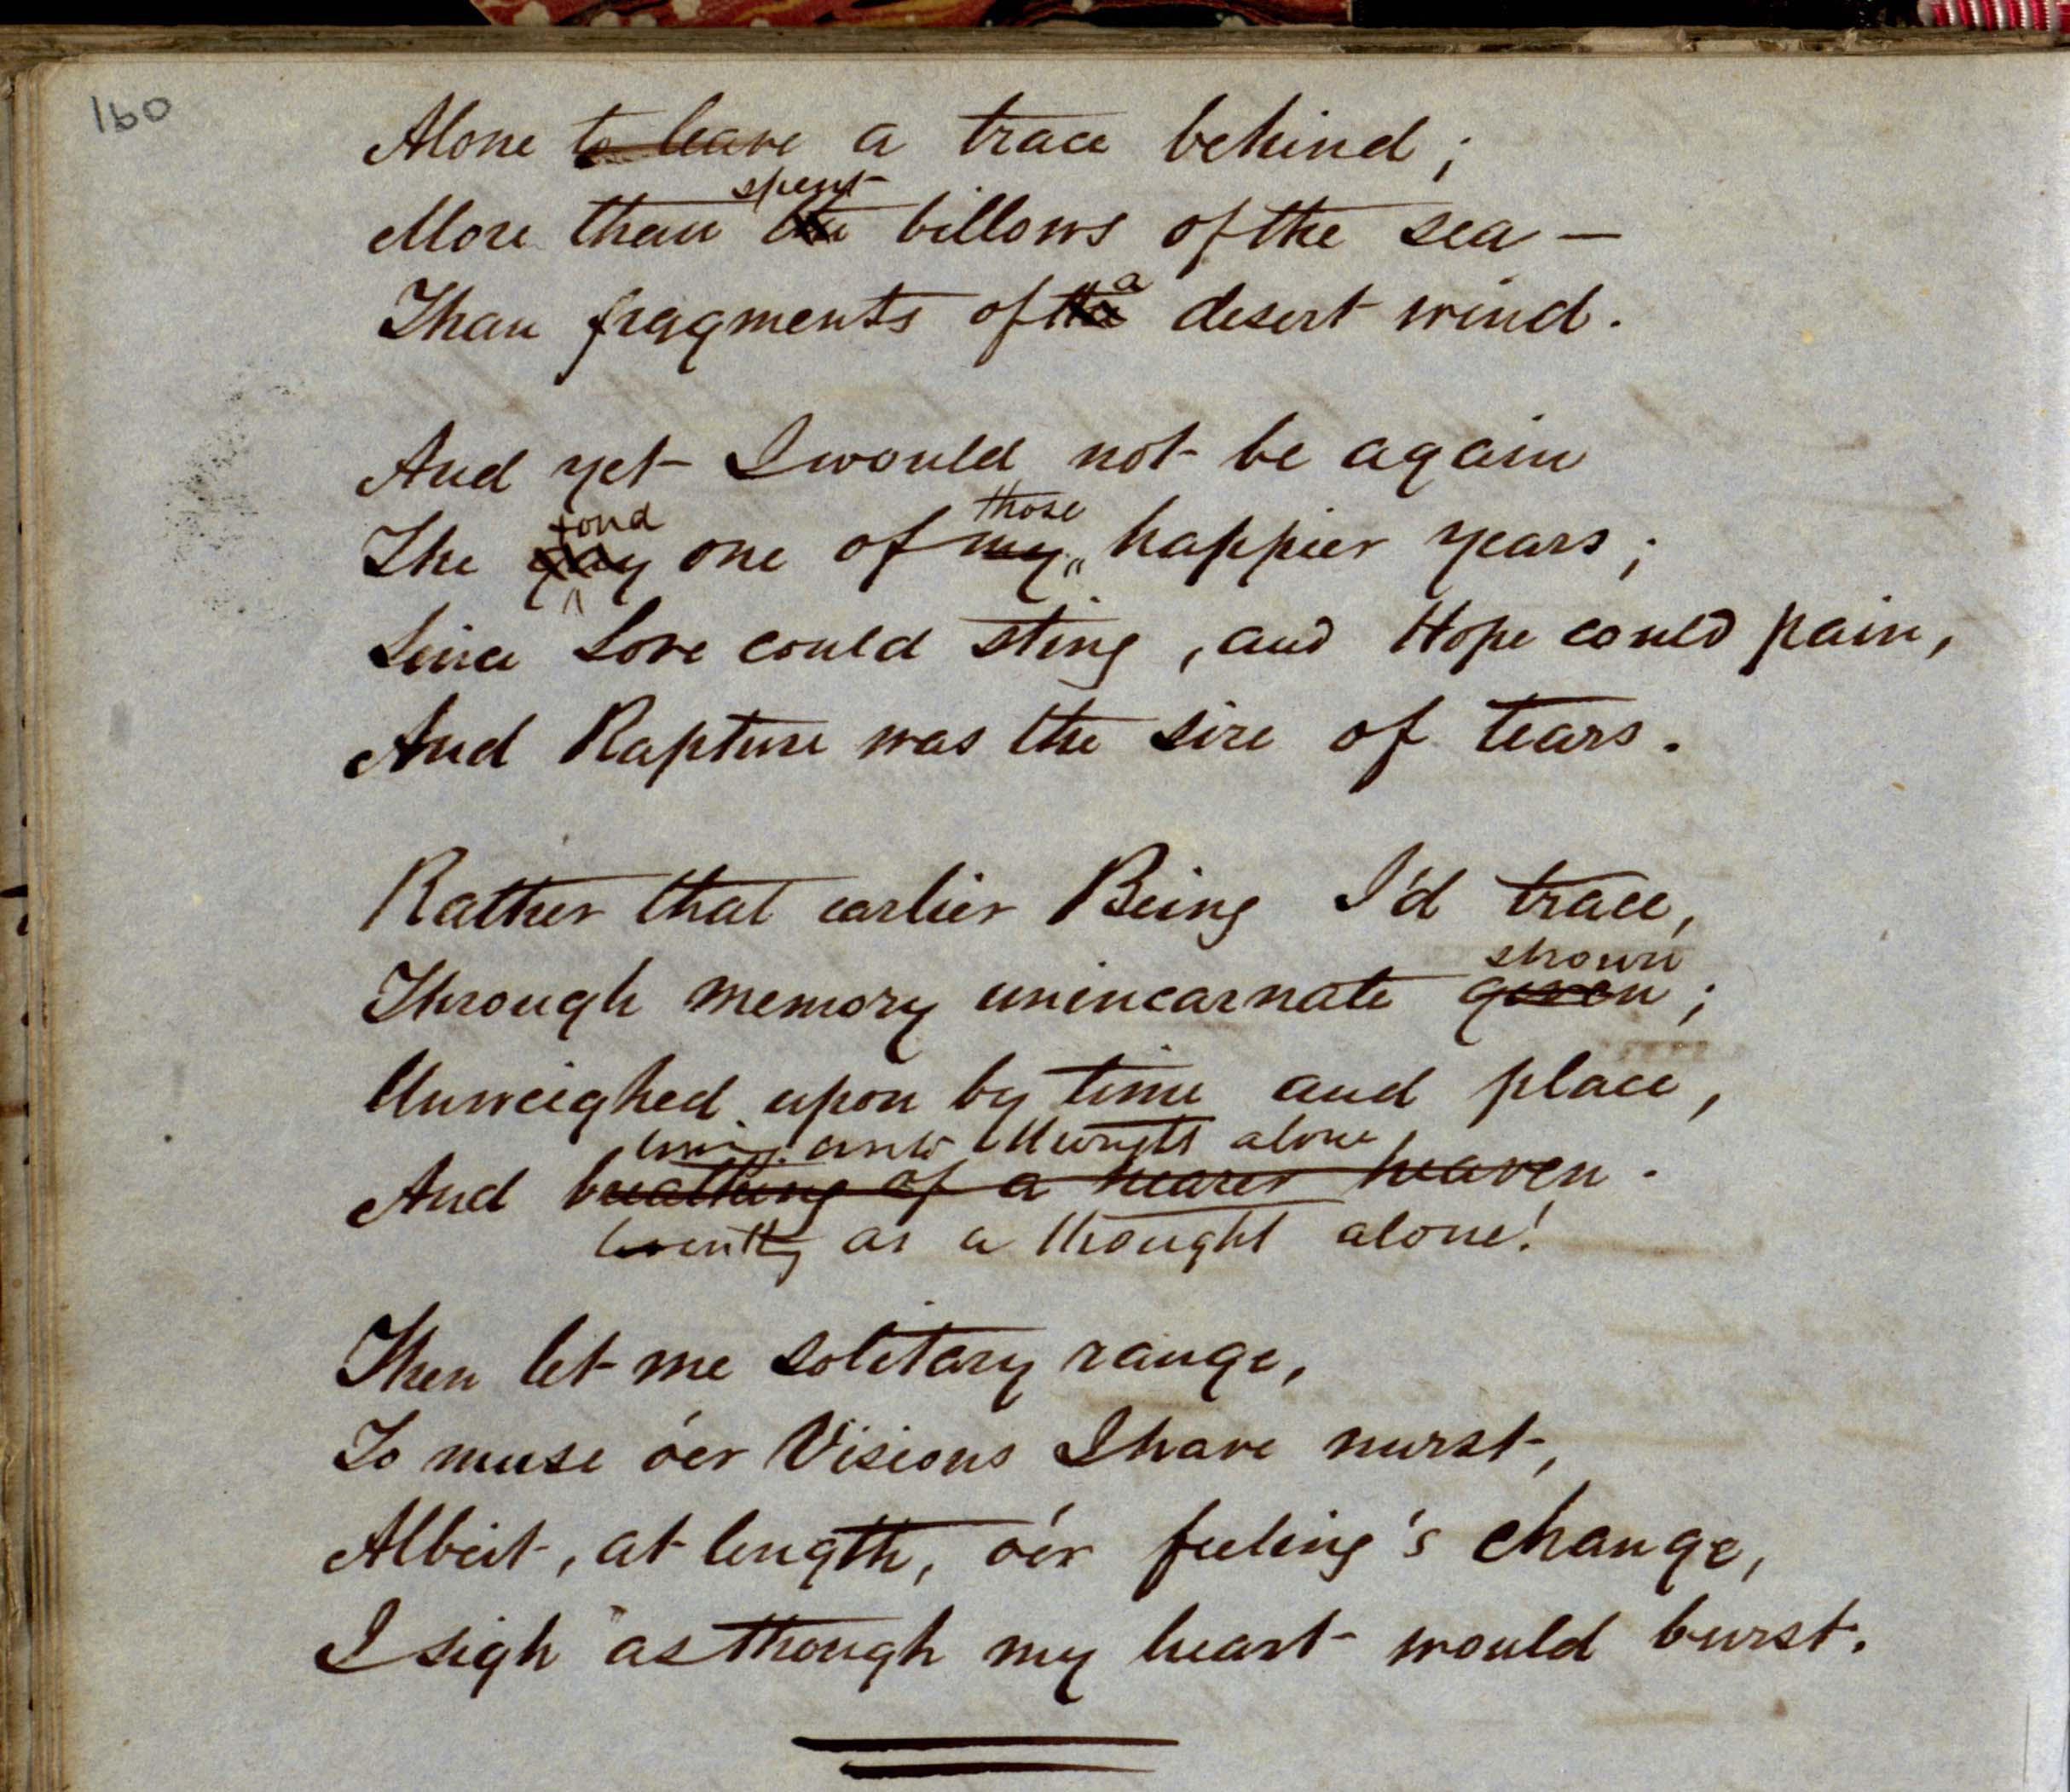 160
Alone to leave a trace behind;
spent
More than the billows of the sea —
a
Than fragments of the desert wind.
And yet I would not be again
fond those
The gay one of my happier years;
Since Love could sting, and Hope could pain,
And Rapture was the sire of tears.
Rather that earlier Being I'd trace,
shown
Through memory unincarnate given;
Unweighed upon by time and place,
alone
And breathing of a nearer heaven.
as a thought alone!
Then let me solitary range,
To muse o'er Visions I have nurst,
Albeit, at length, o'er feeling's change,
I sigh as though my heart would burst.